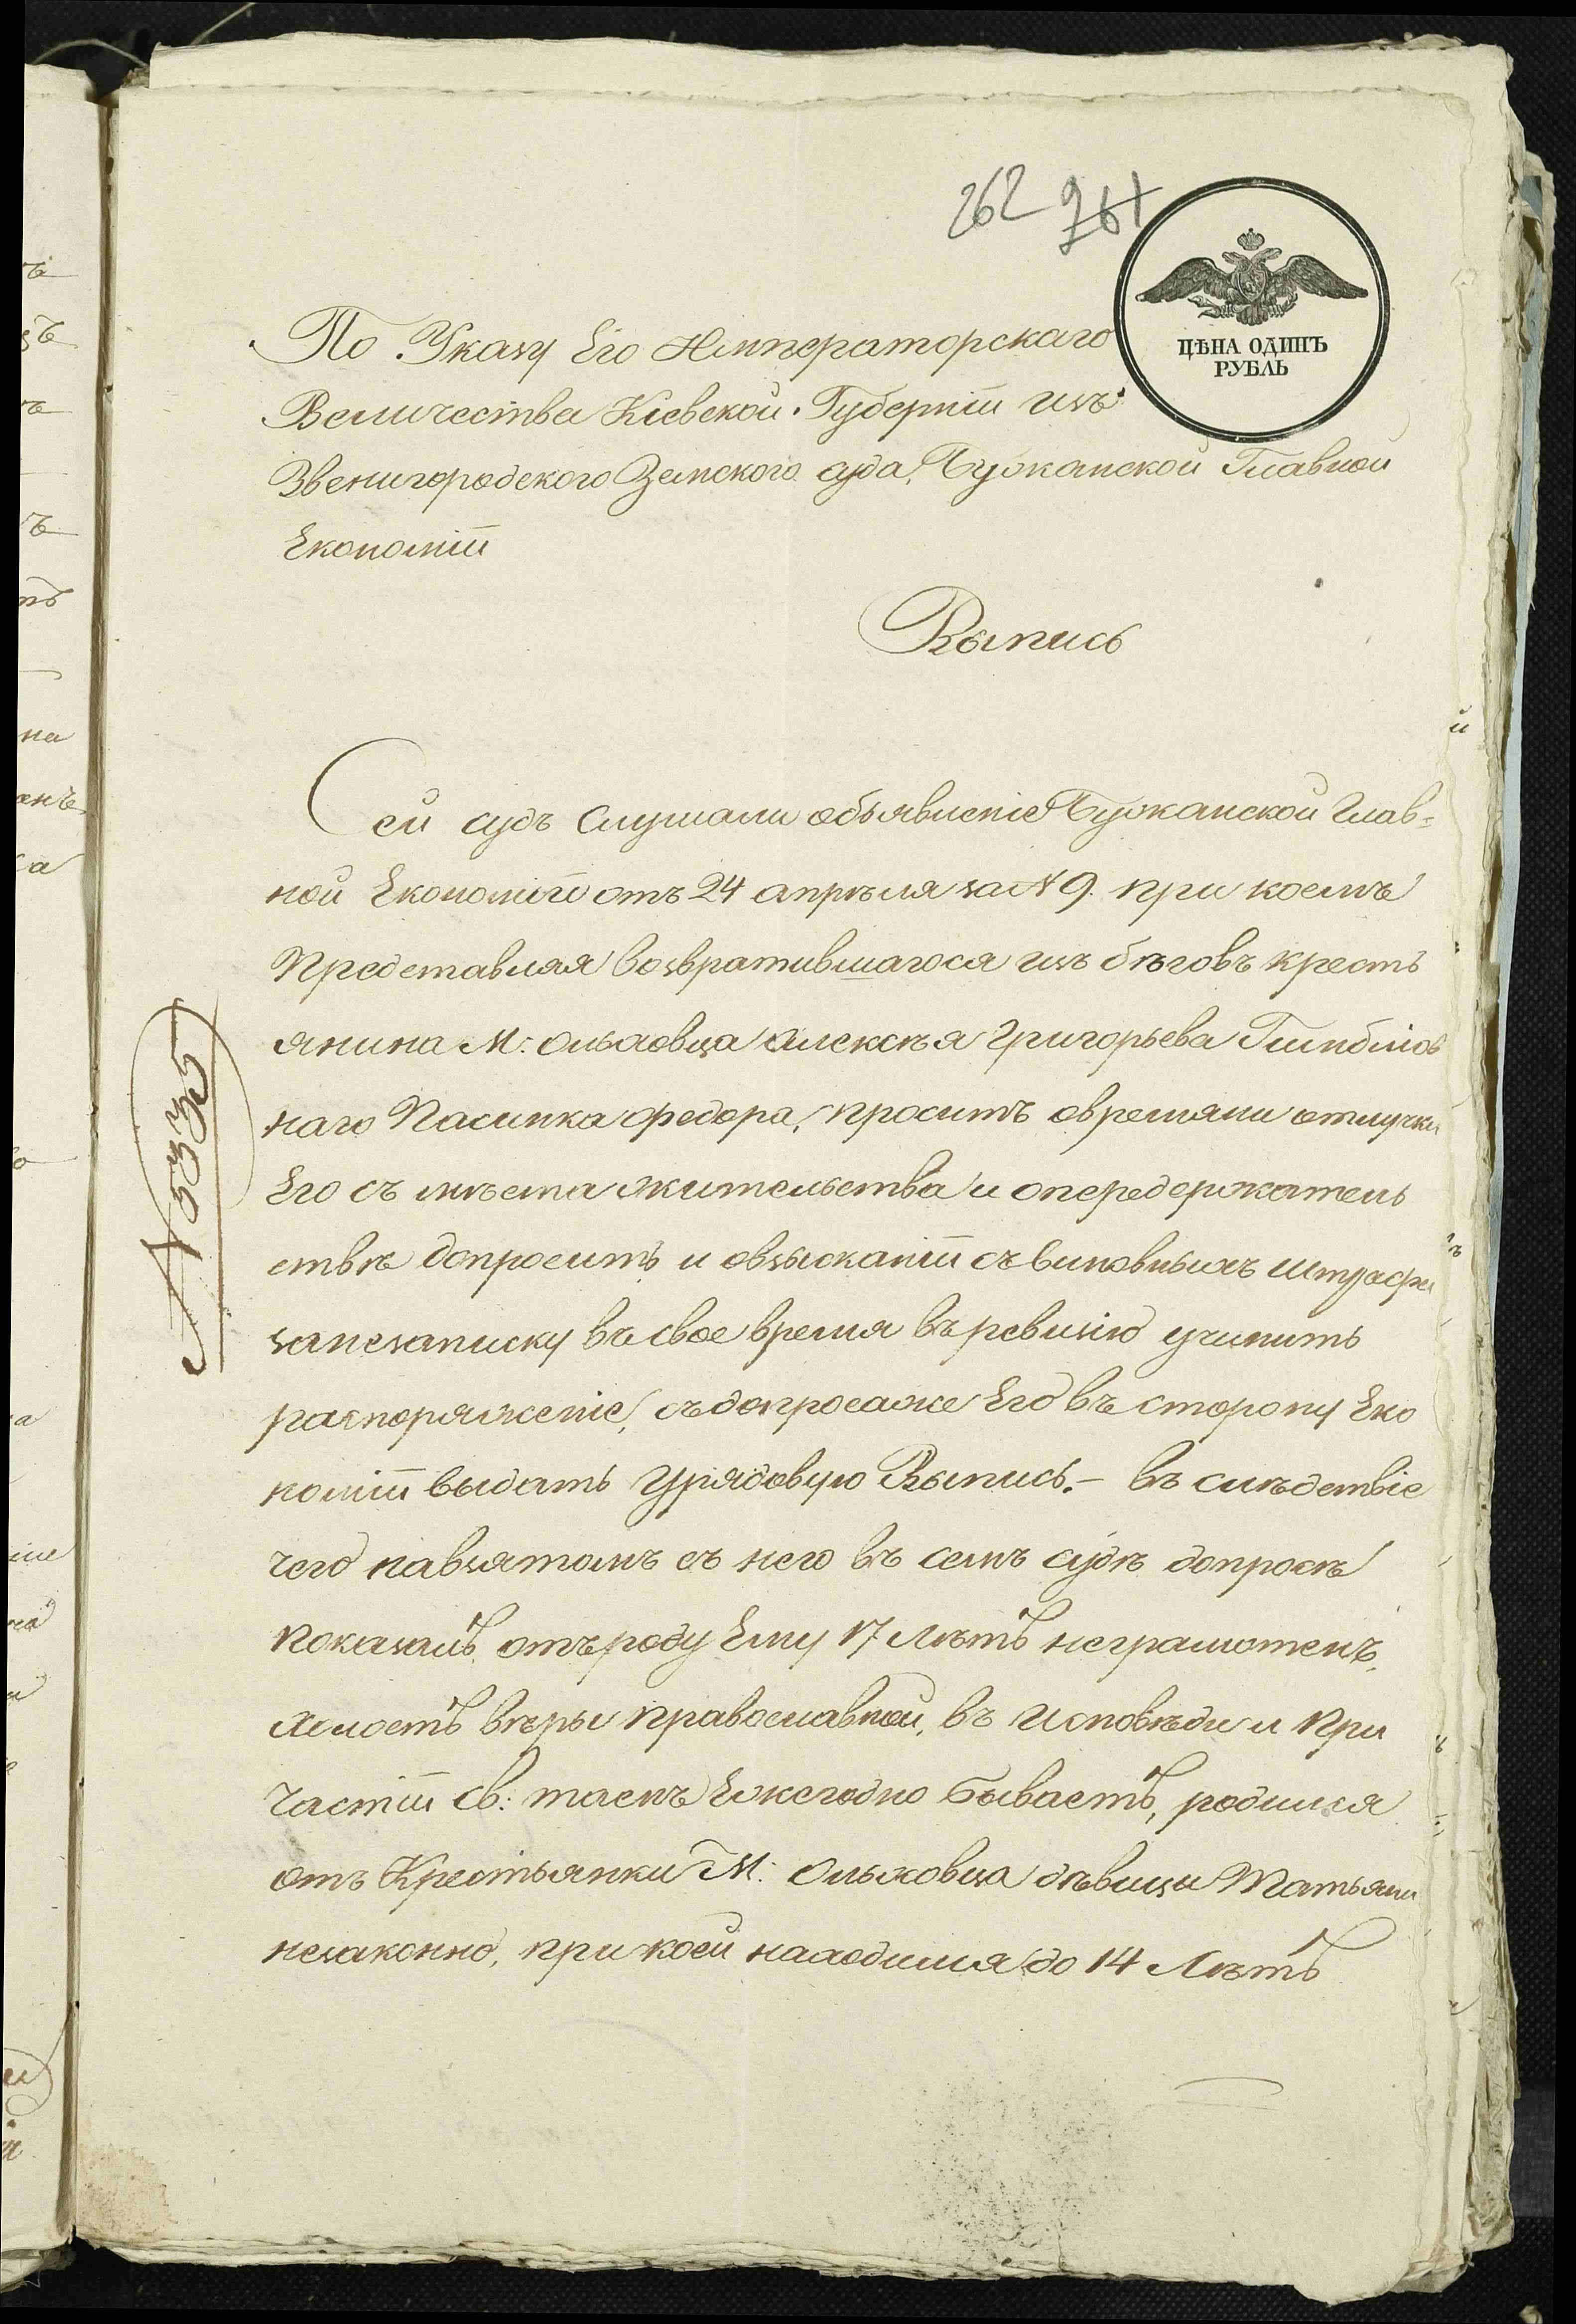 262 261
ЦѢНА ОДИНЪ
РУБЛЬ
По Указу Его Императорскаго
Величества Кіевской Губерніи изъ
Звенигородского Земского суда, Бужанской Главной
Економіи
Выпись
Сей судъ слушали объявленіе Бужанской Глав=
ной Економіи отъ 24 апрѣля за № 9. при коемъ
Представляя возвратившагося изъ бѣговъ кресть
янина М: Ольховца Алексѣя Григорьева
наго Пасинка Федора, проситъ овремяни отлучки
Его съ мѣста жительства и опередержатель
ствѣ допросить и овзысканіи съ виновныхъ штрафа
занезаписку въ свое время въ ревизію учинить
распоряженіе, съ допросаже Его въ сторону Еко
номіи выдать Урядовую Выпись.- въ слѣдствіе
чего навзятомъ съ него въ семъ судѣ допросѣ
Показалъ, отъ роду Ему 17 Лѣтъ неграмотенъ,
холостъ вѣры православной, въ Исповѣди и При
частіи Св: таенъ Ежегодно бываетъ, родился
отъ Крестьянки М: Ольховца дѣвицы Татьяни
незаконно, при коей находился до 14 Лѣтъ
№ 5335